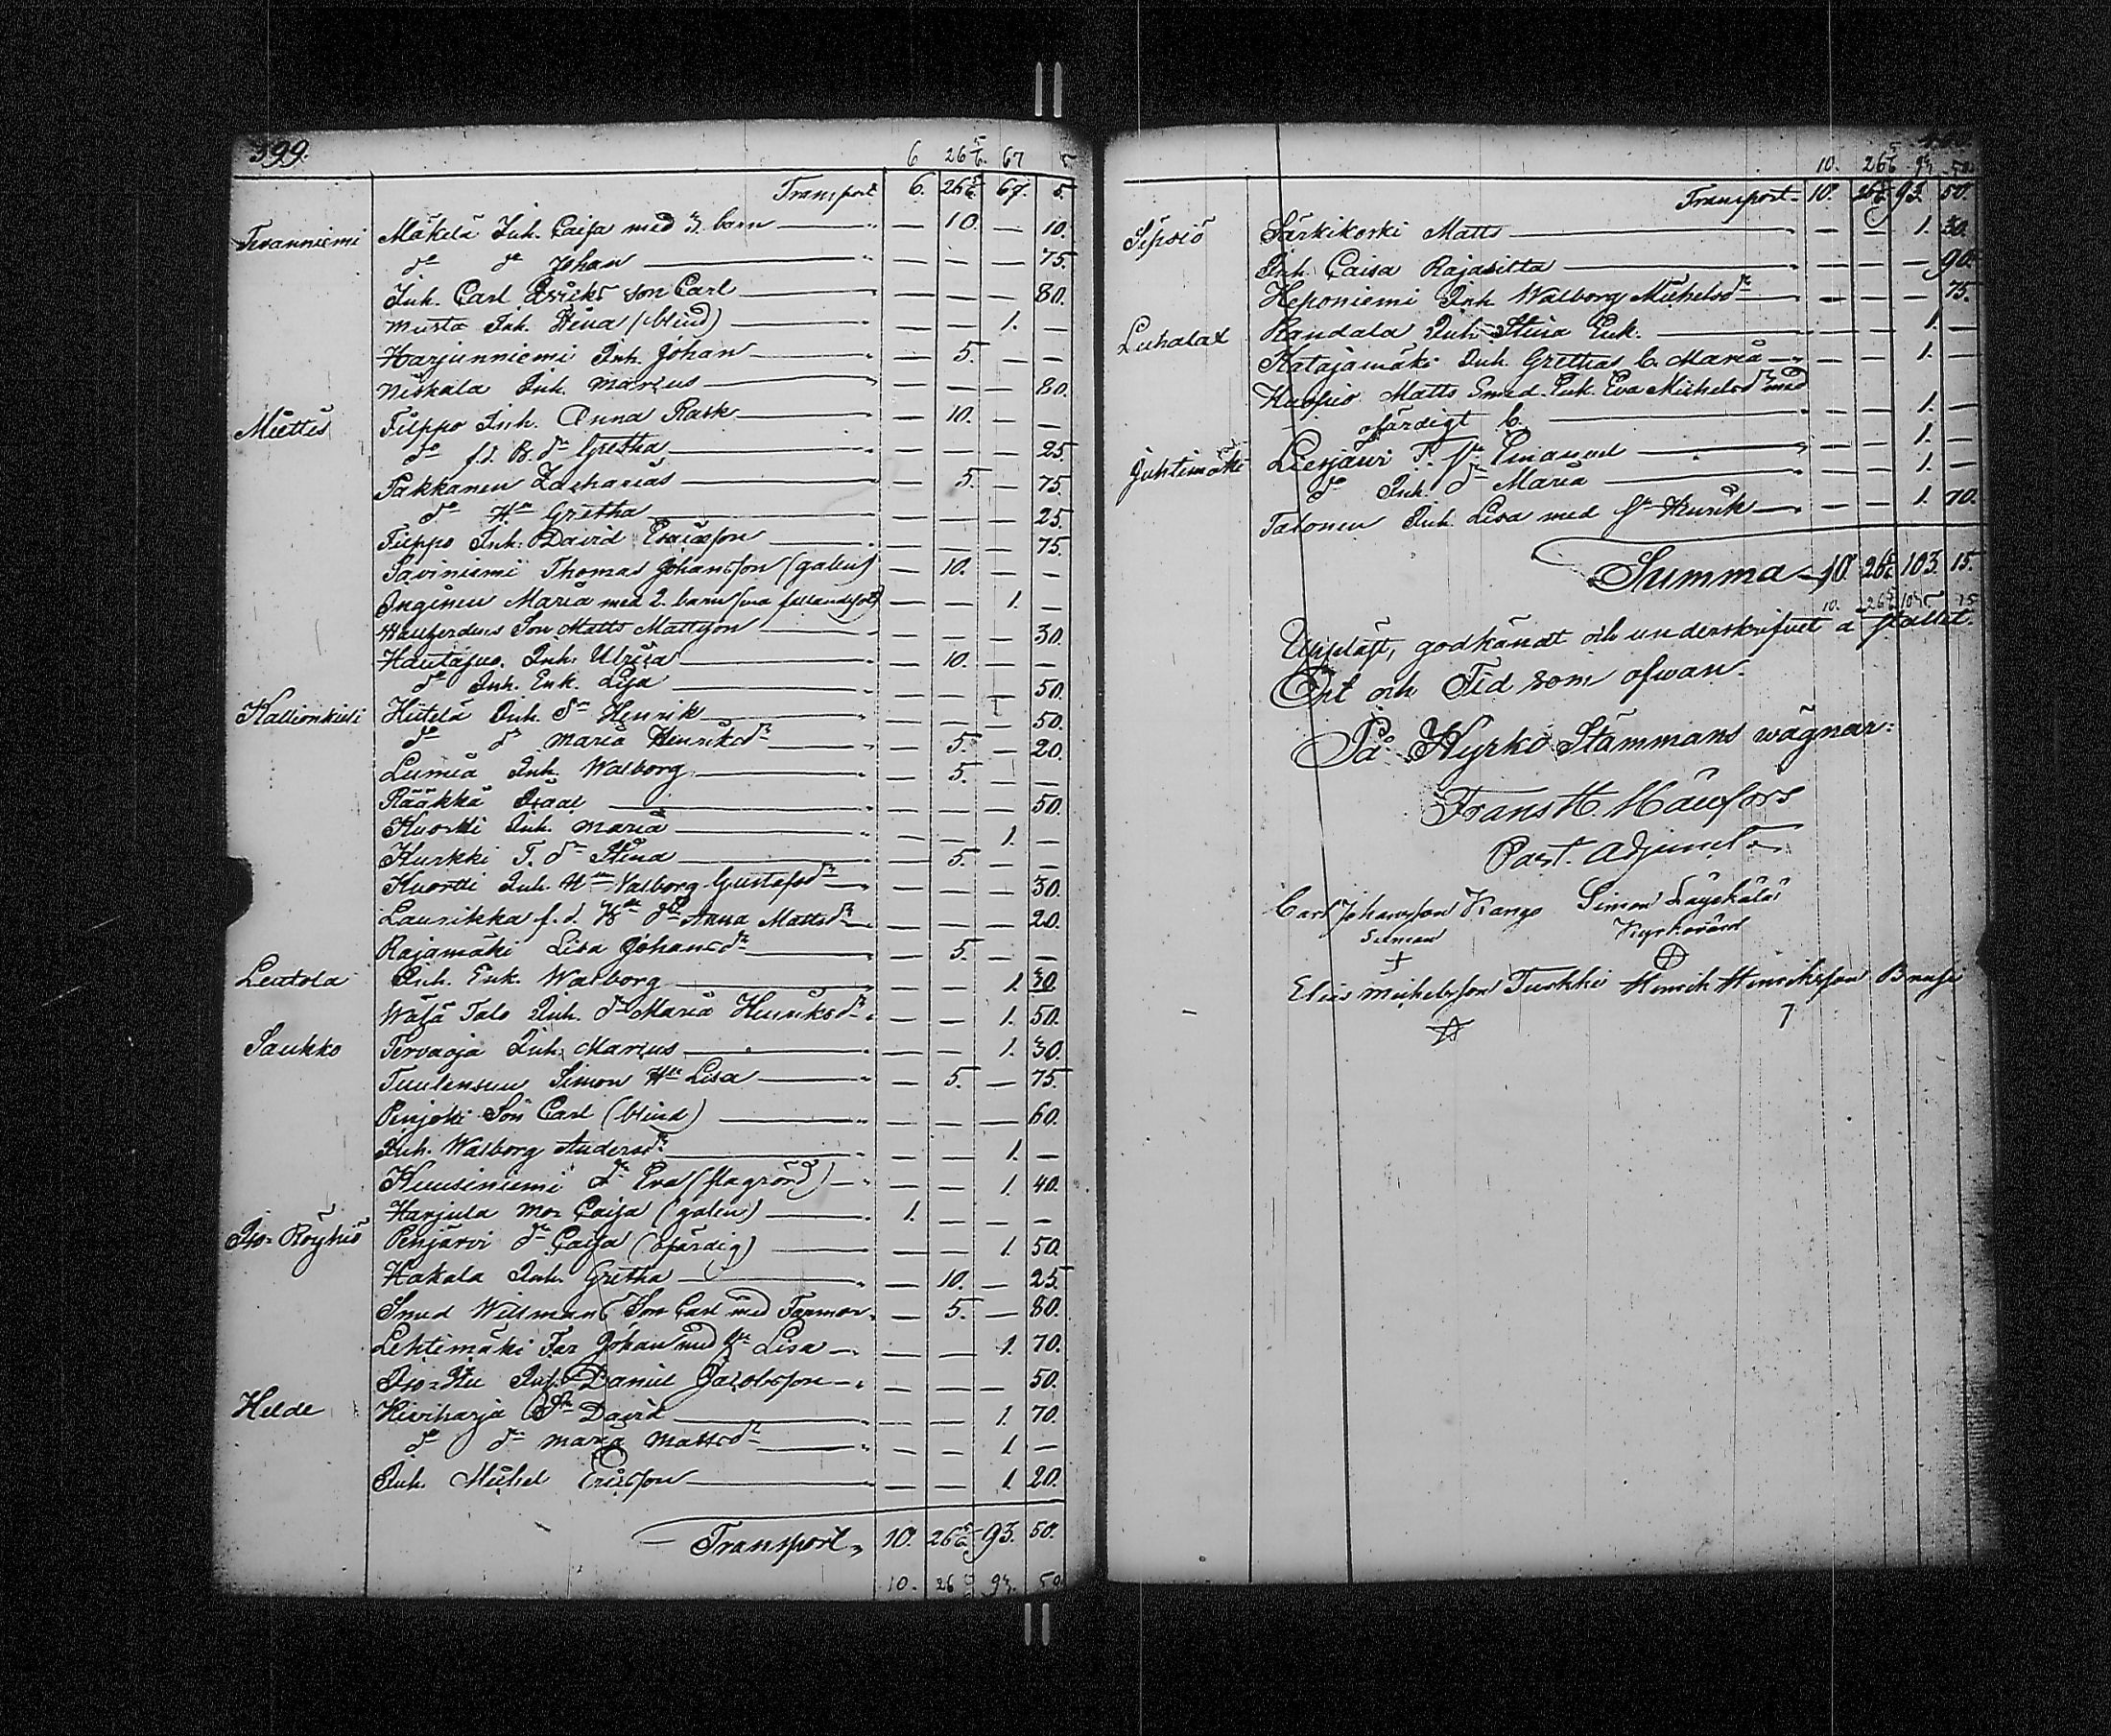 399.
6 26 5/6. 67 5
Transport 6. 26 5/6 67. 5.
Tevanniemi Mäkelä Inh. Caisa med 3 barn — 10. — 10.
do dr Johan — — — 75.
Inh. Carl Eriks son Carl — — — 80.
Musta Inh. Stina (blind) — — 1. —
Harjunniemi Inh. Johan — 5. — —
Niskala Inh. Marcus — — — 80.
Miettis Filppo Inh. Anna Rask — 10. — —
do f.d. B. dr Gretha — — — 25.
Pakkanen Zacharias — 5. — 75.
do Hu Gretha — — — 25.
Filppo Inh. David Ericsson — — — 75.
Saviniemi Thomas Johansson (galen) — 10. — —
Inginen Maria med 2. barn — — 1. —
Son Matts Mattsson — — — 30.
Hautajus. Inh. Ulrica — 10. — —
do Inh. Enk. Lisa — — — 50.
Kallionkieli Hietelä Inh. Sn Henrik — — — 50.
do dr Maria Henriksdr — 5. — 20.
Lumia Inh. Walborg — 5. — —
Rääkkä Isaac — — — 50.
Kuortti Inh. Maria — — 1. —
Kurkki T. dr Stina — 5. — —
Kuortti Inh. Hu Valborg Gustafsdr — — — 30.
Laurikka f.d. dr Anna Mattsdr — — — 20.
Rajamäki Lisa Johansdr — 5. — —
Leutola Inh. Enk. Walborg — — 1. 30.
Wäjä Talo Inh. dr Maria Henriksdr — — 1. 50.
Saukko Tervaoja Inh. Marcus — — 1. 30.
Tuulensuu Simon Hu Lisa — 5. — 75.
Penjotti Son Carl (blind) — — — 60.
Inh. Walborg Andersdr — — 1. —
Kuusiniemi dr Eva (slagrörd) — — 1. 40.
Harjula Mor Caisa (galen) 1. — — —
Iso-Röyhiö Penjärvi dr Caisa (ofärdig) — — 1. 50.
Hakala Inh. Gretha — 10. — 25.
Smed Willmans Son Carl med Farmor — 5. — 80.
Lehtimäki Far Johan med Hu Lisa — — 1. 70.
Daniel Jacobsson — — — 50.
Helde Kiviharja David — — 1. 70.
do dr Maria Mattsdr — — 1. —
Inh. Michel Ericsson — — 1. 20.
Transport 10. 26 5/6. 93. 50.
10. 26 5/6 93. 50
10. 26 5/6 93. 50.
Transport 10. 26 5/6 93. 50.
Sipsiö Särkikoski Matts — — 1. 30.
Inh. Caisa Rajasilta — — — 90.
Heponiemi Inh. Walborg Michelsdr — — — 75.
Luhalax Randala Inh. Stina Enk. — — 1. —
Katajamäki Inh. Grethas b. Maria — — 1. —
Matts Smed Enk. Eva Michelsdr med
ofärdigt b. — — 1. —
Juhtimäki Liesjärvi T. Emanuel — — 1. —
do Inh. dr Maria — — 1. —
Talonen Inh. Lisa med Sn Henrik — — 1. 70.
Summa 10. 26 5/6 103. 15.
10. 26 5/6 103 15
Uppläst, godkändt och underskrifvet å stället.
Ort och Tid som ofvan.
På Kyrko Stämmans vägnar:
Frans H. Häufors
Past. Adjunct
Carl Johansson Kango Simon Läyskälä
Kyrkovärd
Elias Michelsson Turkki Henrik Henriksson